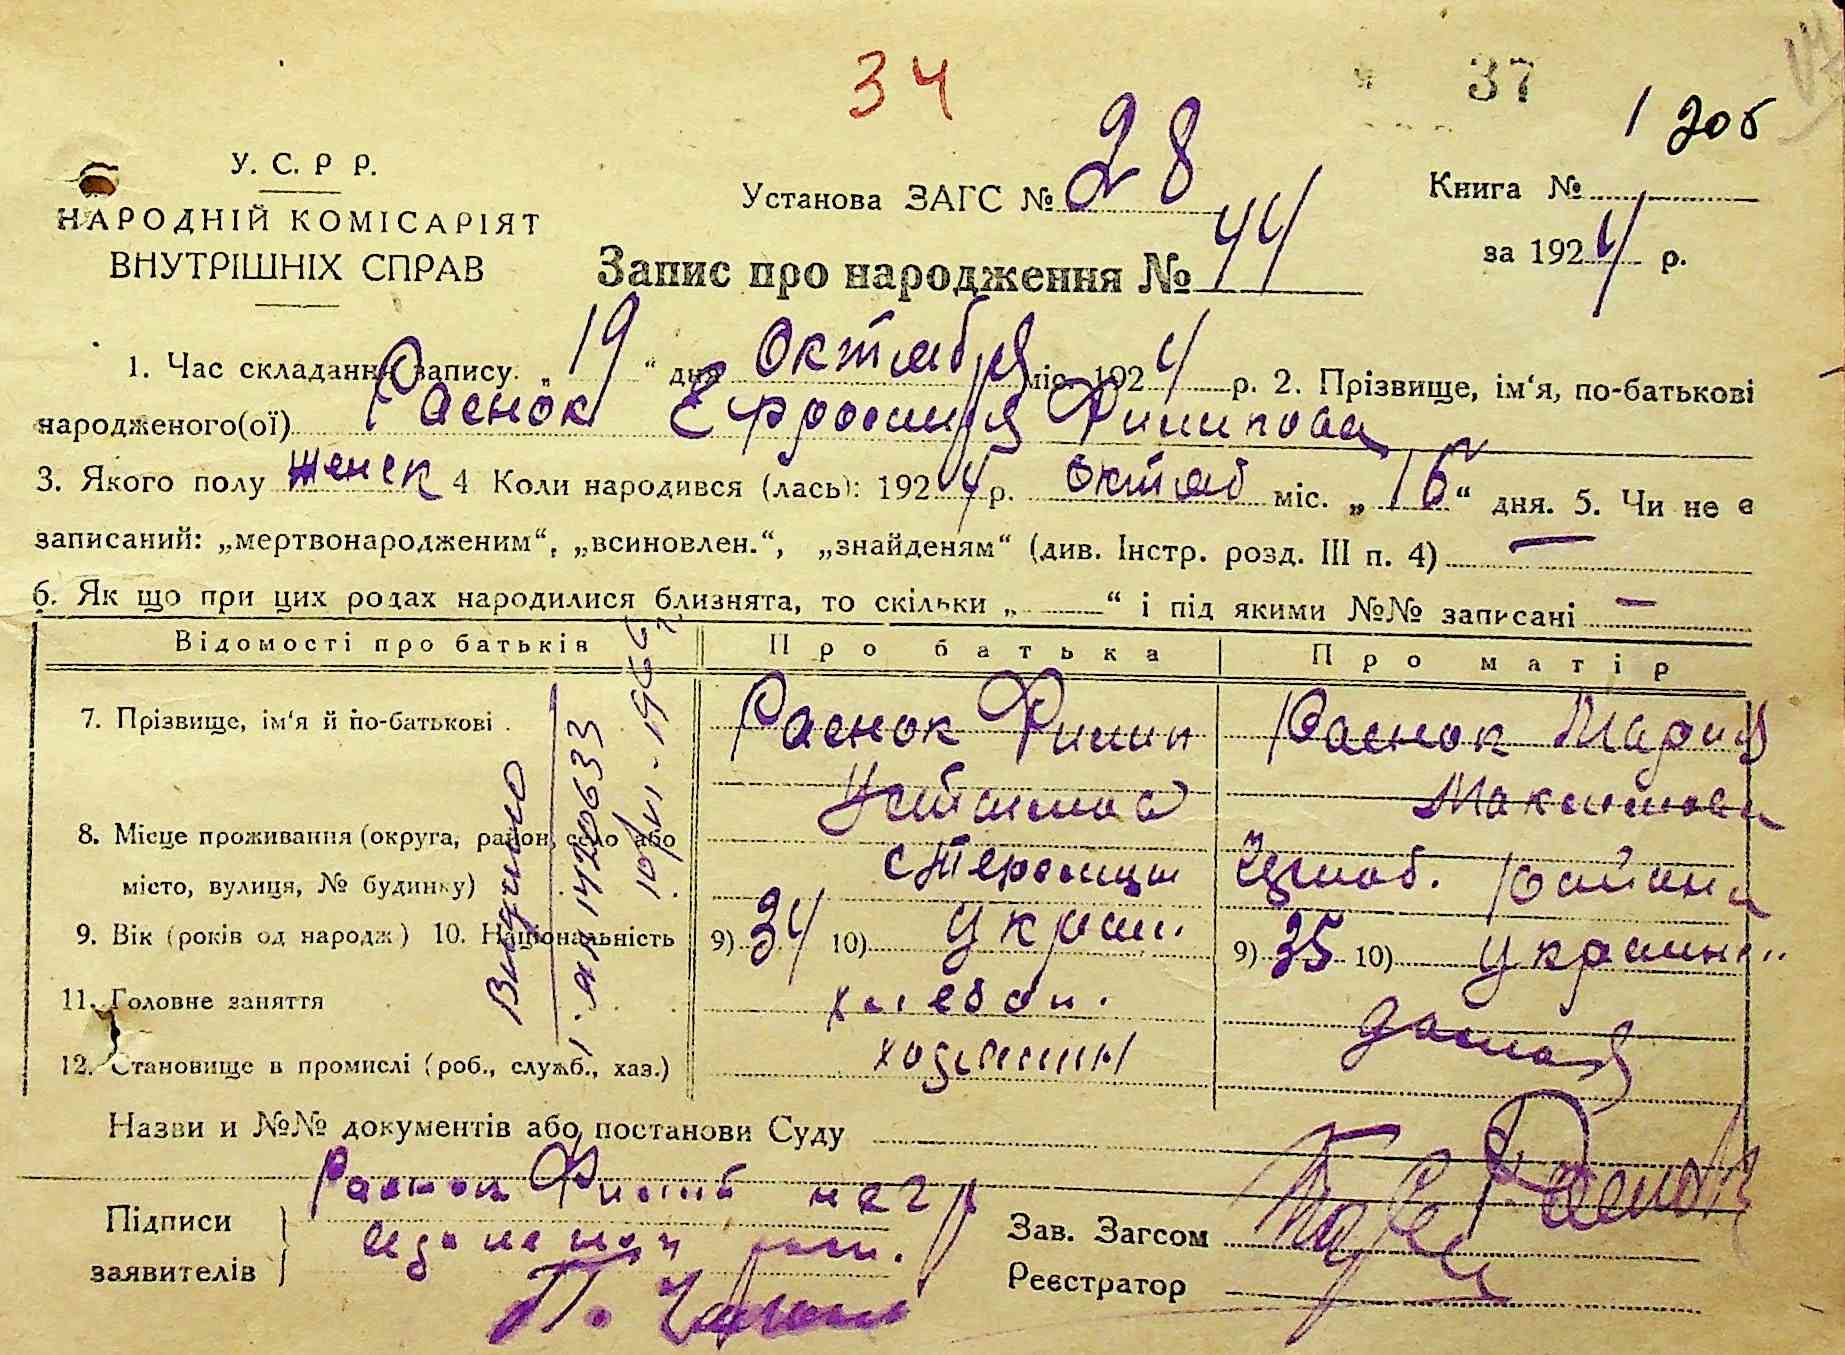 34
37
1 2об
У. С. Р Р.
НАРОДНІЙ КОМІСАРІЯТ
ВНУТРІШНІХ СПРАВ
Установа ЗАГС № 28
Книга №
Запис про народження № 44
за 1924 р.
1. Час складання запису „19“ дня Октября міс. 1924 р. 2. Прізвище, ім‘я, по-батькові
народженого(ої) Раенок Ефросиния Филипова
3. Якого полу женск 4 Коли народився (лась): 1924 р. октяб міс. „16“ дня. 5. Чи не є
записаний: „мертвонародженим“, „всиновлен.“, „знайденям“ (див. Інстр. розд. III п. 4) —
6. Як що при цих родах народилися близнята, то скільки „ “ і під якими №№ записані —
Відомості про батьків Про батька Про матір
7. Прізвище, ім‘я й по-батькові Раенок Филип Раенок Мария
Устимов Максимова
8. Місце проживання (округа, район, село або
місто, вулиця, № будинку) района
9. Вік (років од народж) 10. Національність 9) 34 10) украин. 9) 35 10) украинк..
11. Головне заняття хлебоп.
12. Становище в промислі (роб., служб., хаз.) хозяин
Видано
1420633
1966
Назви и №№ документів або постанови Суду
Підписи заявителів Раенок Филип негр
Зав. Загсом Раенок
Реєстратор